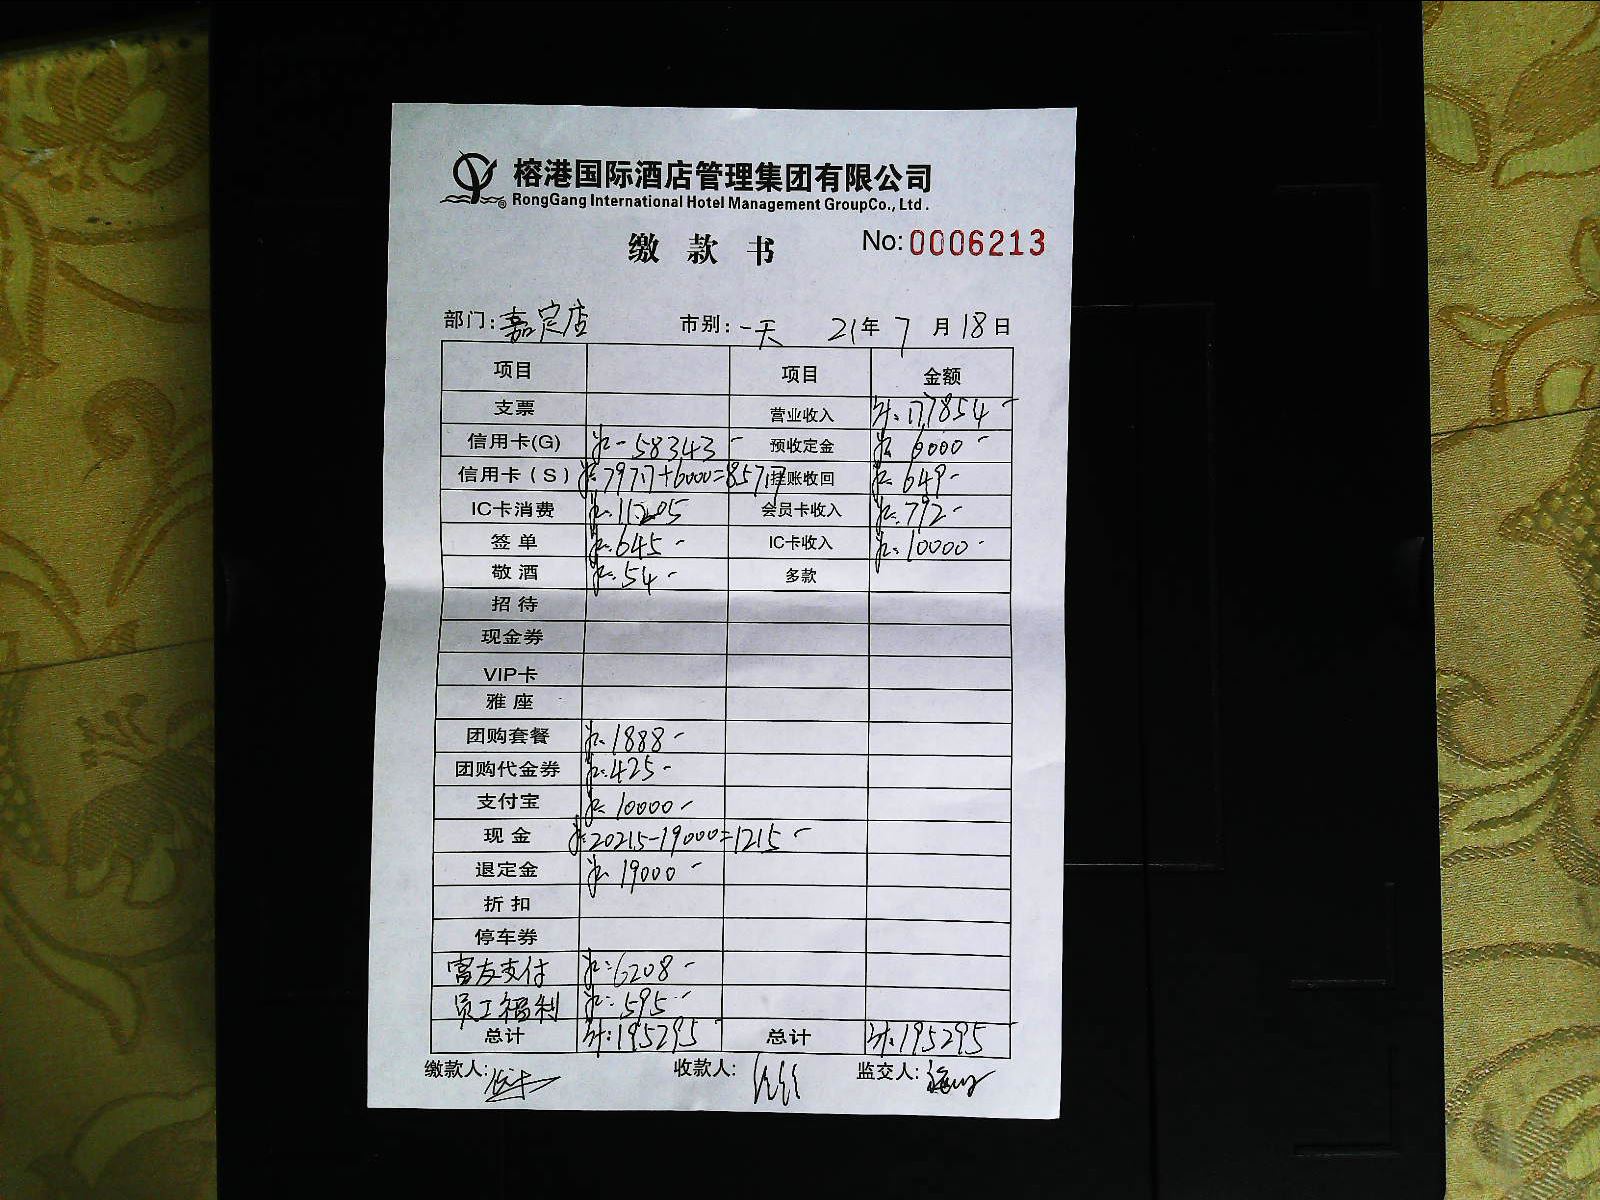 榕港国际酒店管理集团有限公司
RongGang International Hotel Management GroupCo., Ltd.
缴款书 No:0006213
部门:嘉定店 市别:一天 21年7月18日
项目 项目 金额
支票 营业收入 计:177854-
信用卡(G) 58343- 预收定金 6000-
信用卡(S) 79717+6000=85717 挂账收回 649-
IC卡消费 11205 会员卡收入 792-
签单 645- IC卡收入 10000-
敬酒 54- 多款
招待
现金券
VIP卡
雅座
团购套餐 1888-
团购代金券 425-
支付宝 10000-
现金 20215-19000=1215-
退定金 19000-
折扣
停车券
富友支付 6208-
员工福利 595-
总计 计:195295- 总计 计:195295-
缴款人: 收款人: 监交人: